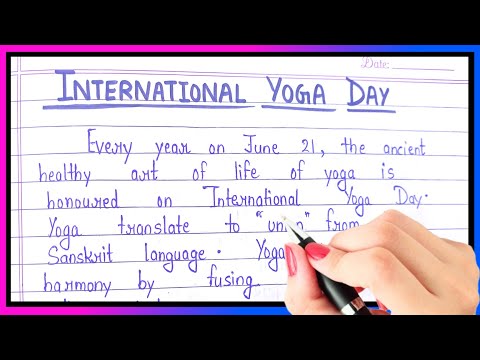 Date:
INTERNATIONAL YOGA DAY
Every year on June 21, the ancient
healthy art of life of yoga is
honoured on International Yoga Day.
Yoga translate to "union" from
Sanskrit language. Yoga
harmony by fusing